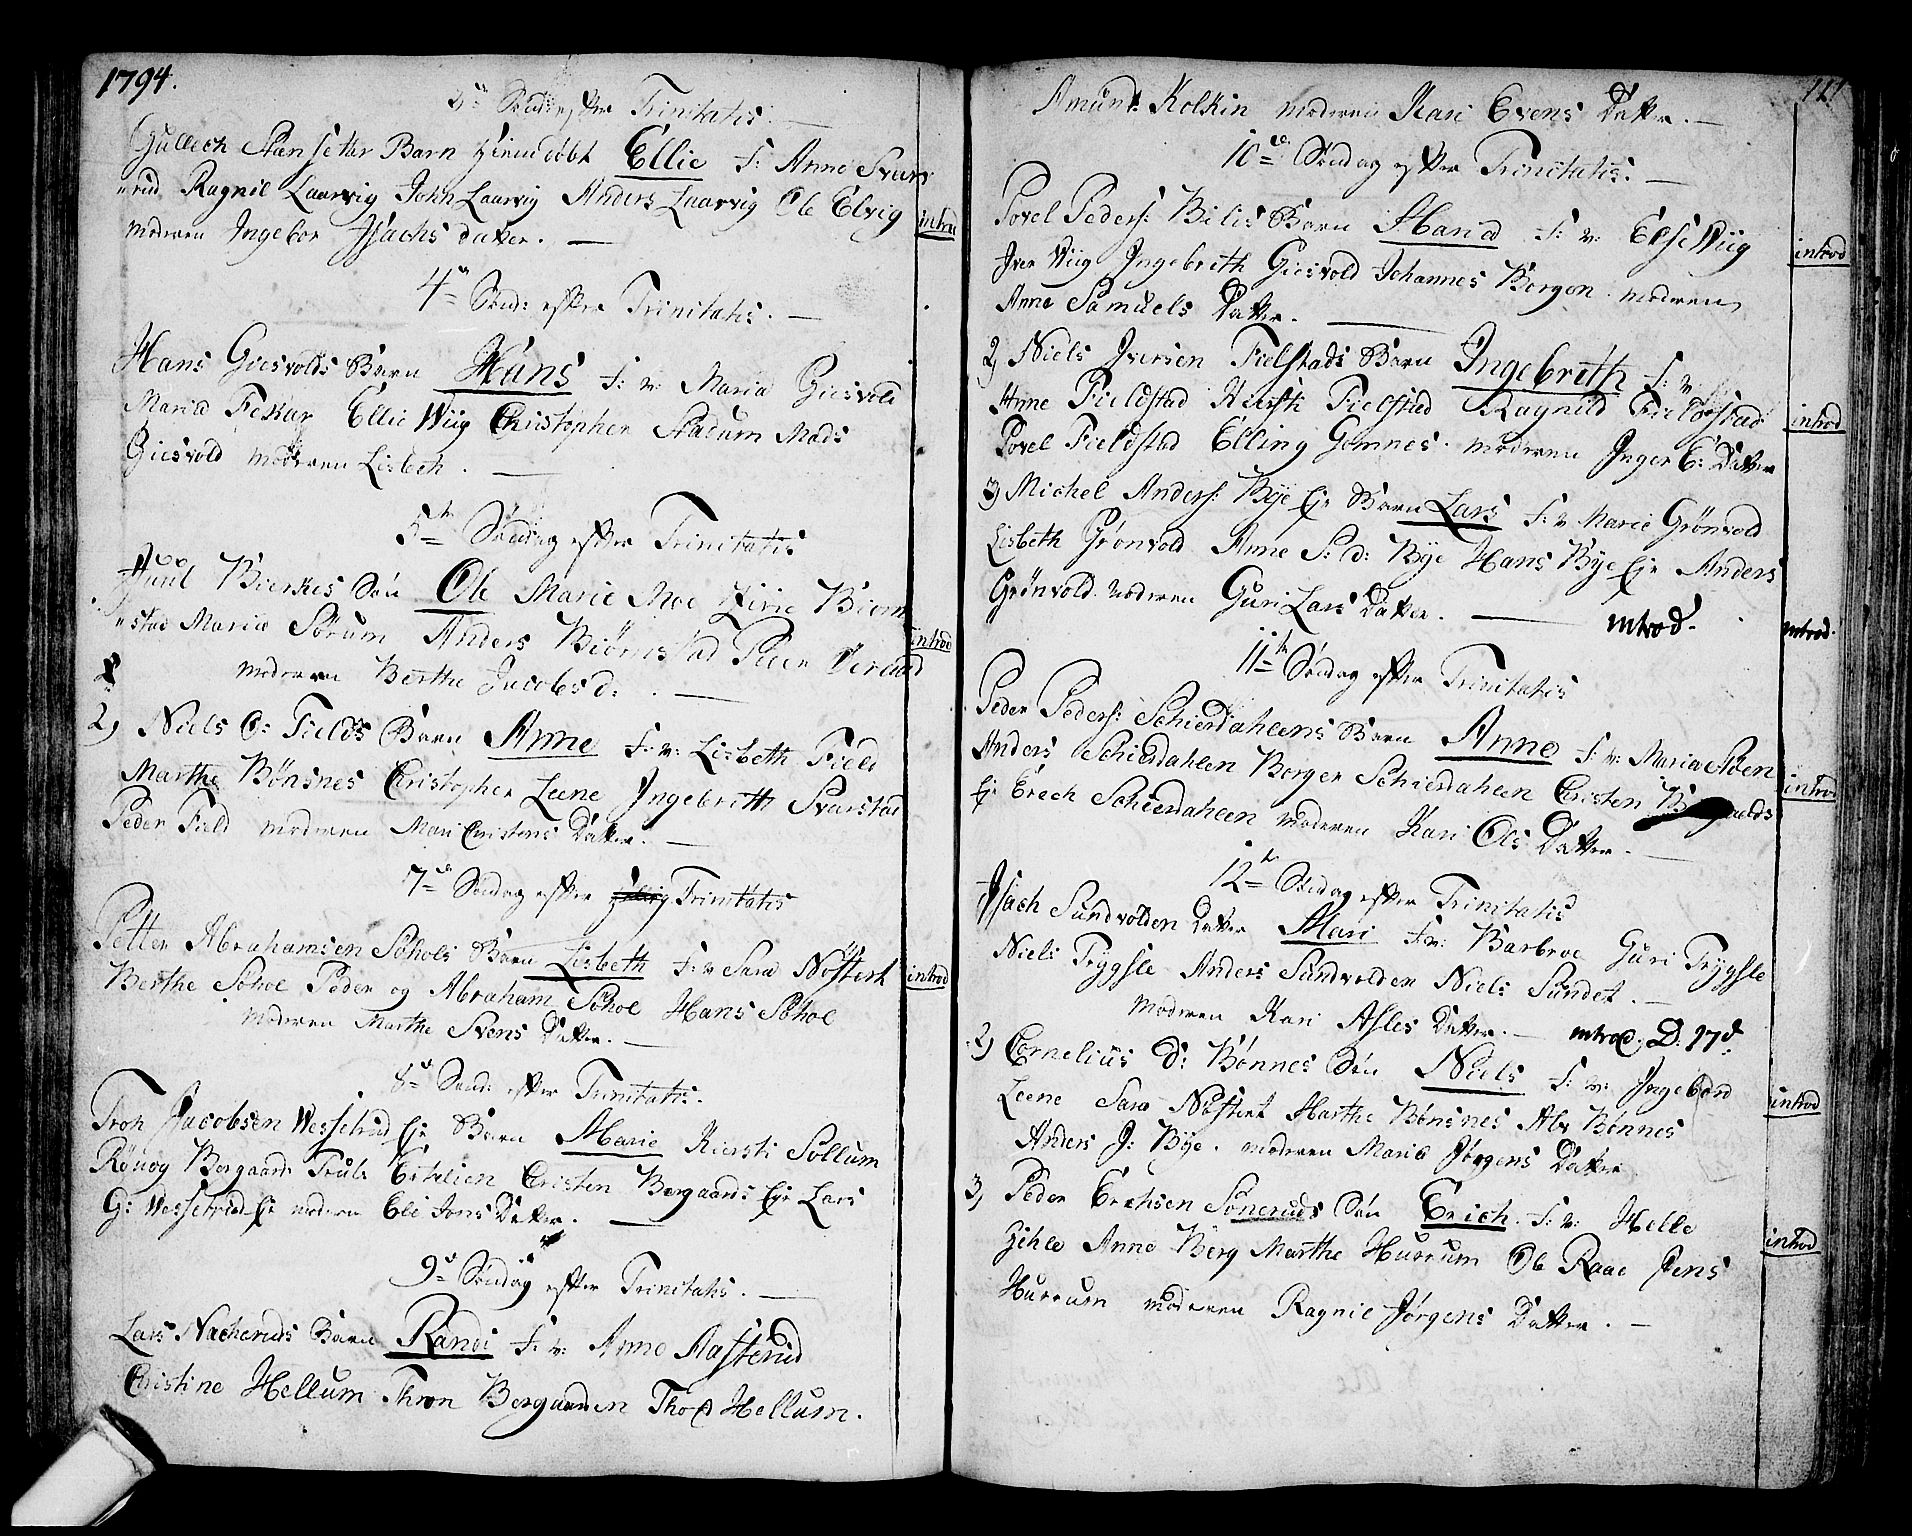 1794.
Sønd: efter Trinitatis.
Gullech Stensetter Barn hiemdøbt Ellie F: Anne Svars
rud Ragnil Laarvig John Laarvig Anders Laarvig Ole Elvig
introd
moderen Ingebor Isachs datter.
4de Sønd: efter Trinitatis.
Hans Giesvolds Barn Hans F: v: Maria Giesvold
Maria Feskar Ellie Wiig Christopher Stadum Mads
Giesvold moderen Lisbeth.
5te Søndag efter Trinitatis
Bierkes Søn Ole Marie Moe Biørn
stad Maria Sørum Anders Biørnstad Peder
introd
moderen Berthe Jacobs d:
2) Niels O: Fields Barn Anne F: v: Lisbeth Field
Marthe Bønsnes Christopher Leene Ingebrith Svarstad
Peder Field moderen Mari Christens Datter.
7de Søndag efter Trinitatis
Petter Abrahamsen Søhols Barn Lisbeth F: v Sara Nøstert
Berthe Søhol Peder og Abraham Søhol Hans Søhol
introd
moderen Marthe Svens Datter.
8de Sønd: efter Trinitatis.
Tron Jacobsen Wesselrud Eje Barn Marie Kiersti Sollum
Rønog Borgaard Truls Christen Borgaards Eje Lars
G: Wesselrud Eje moderen Eli Jons Datter.
9de Søndag efter Trinitatis.
Lars Nacheruds Barn Randi F: v: Anne Aasterud
Christine Hellum Thron Borgaarden Thord Hellum.
111
Amund Kolkin moderen Kari Evens Datter.
10de Søndag efter Trinitatis.
Povel Peders: Bilis Barn Maria F: v: Else Wiig
introd
Iver Wiig Ingebrith Giesvold Johannes Borgen moderen
Anne Samuels Datter.
2) Niels Iversen Fieldstads Barn Ingebrith F: v:
Anne Fieldstad Kiersti Fieldstad Ragnild Fieldstad
introd
Povel Fieldstad Elling Gomnes. moderen Inger E: Datter
3) Michel Anders: Bye Eje Barn Lars F: v Marie Grønvold
Lisbeth Grønvold Anne S: d: Bye Hans Bye Eje Anders
Grønvold. Moderen Guri Lars Datter. introd.
introd.
11te Søndag efter Trinitatis
Peder Peders: Schierdalens Barn Anne F: v: Maria Steen
Anders Schierdalen Borger Schierdalen Christen
introd
Eje Erech Schierdalen moderen Kari Ols Datter.
12te Søndag efter Trinitatis
Isach Sundvolden Datter Mari F: v: Barbroe Guri Trygsle
Niels Trygsle Anders Sundvolden Niels Sundet.
Moderen Kari Asles Datter. introd: D. 17de
2) Cornelius d: Bønnes Søn Niels F: v: Ingebord
Leene Sara Nøstert Marthe Bønsnes Abr Bønnes
introd
Anders J: Bye. moderen Maria Jørgens Datter
3) Peder Erchsen Søneruds Søn Erich. F: v: Helle
Zihle Anne Berg Marthe Hurrum Ole Raae Jens
introd
Hurrum moderen Ragnil Jørgens Datter.